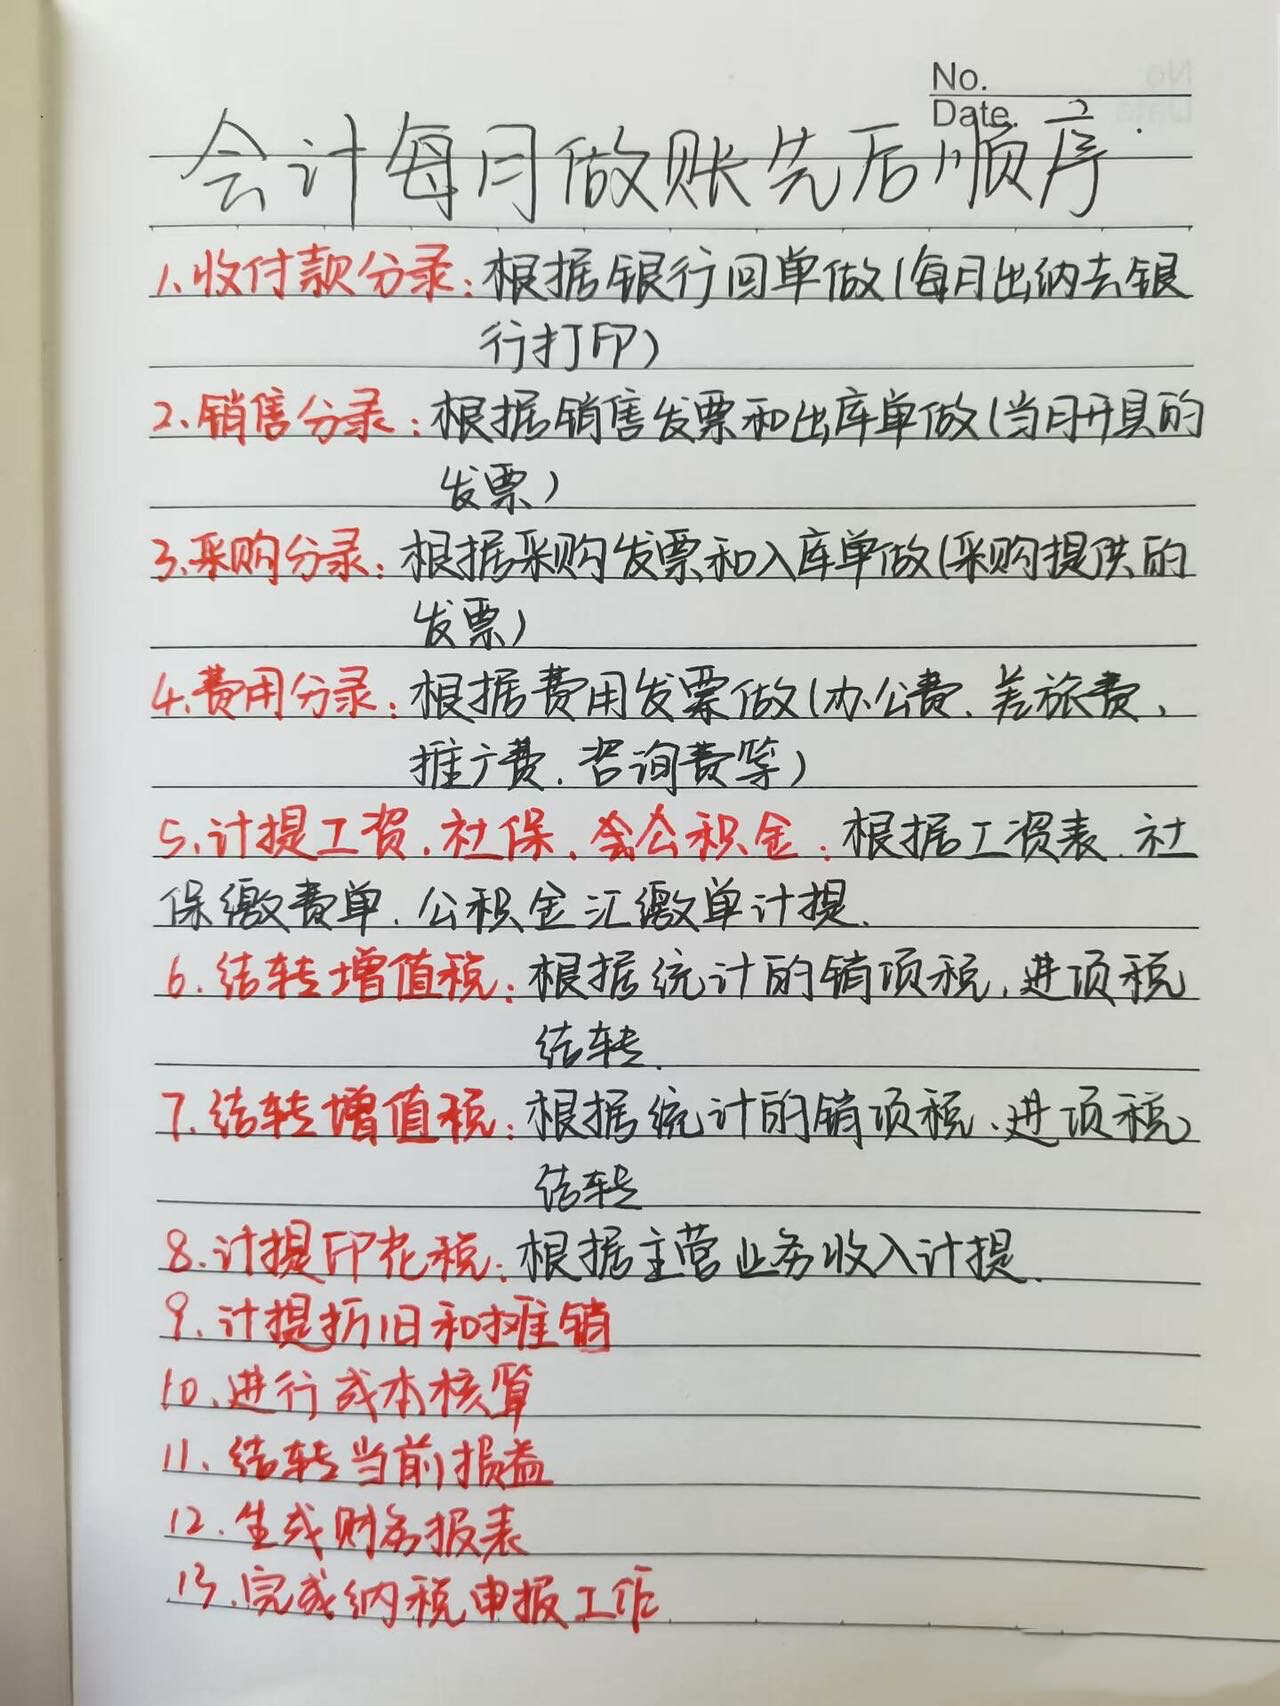 No.
Date.
会计每月做账先后顺序
1.收付款分录:根据银行回单做(每月出纳去银
行打印)
2.销售分录:根据销售发票和出库单做(当月开具的
发票)
3.采购分录:根据采购发票和入库单做(采购提供的
发票)
4.费用分录:根据费用发票做(办公费、差旅费、
推广费、咨询费等)
5.计提工资、社保、公积金:根据工资表、社
保缴费单、公积金汇缴单计提.
6.结转增值税:根据统计的销项税、进项税
结转.
7.结转增值税:根据统计的销项税、进项税
结转
8.计提印花税:根据主营业务收入计提.
9.计提折旧和摊销
10.进行成本核算
11.结转当前损益
12.生成财务报表
13.完成纳税申报工作